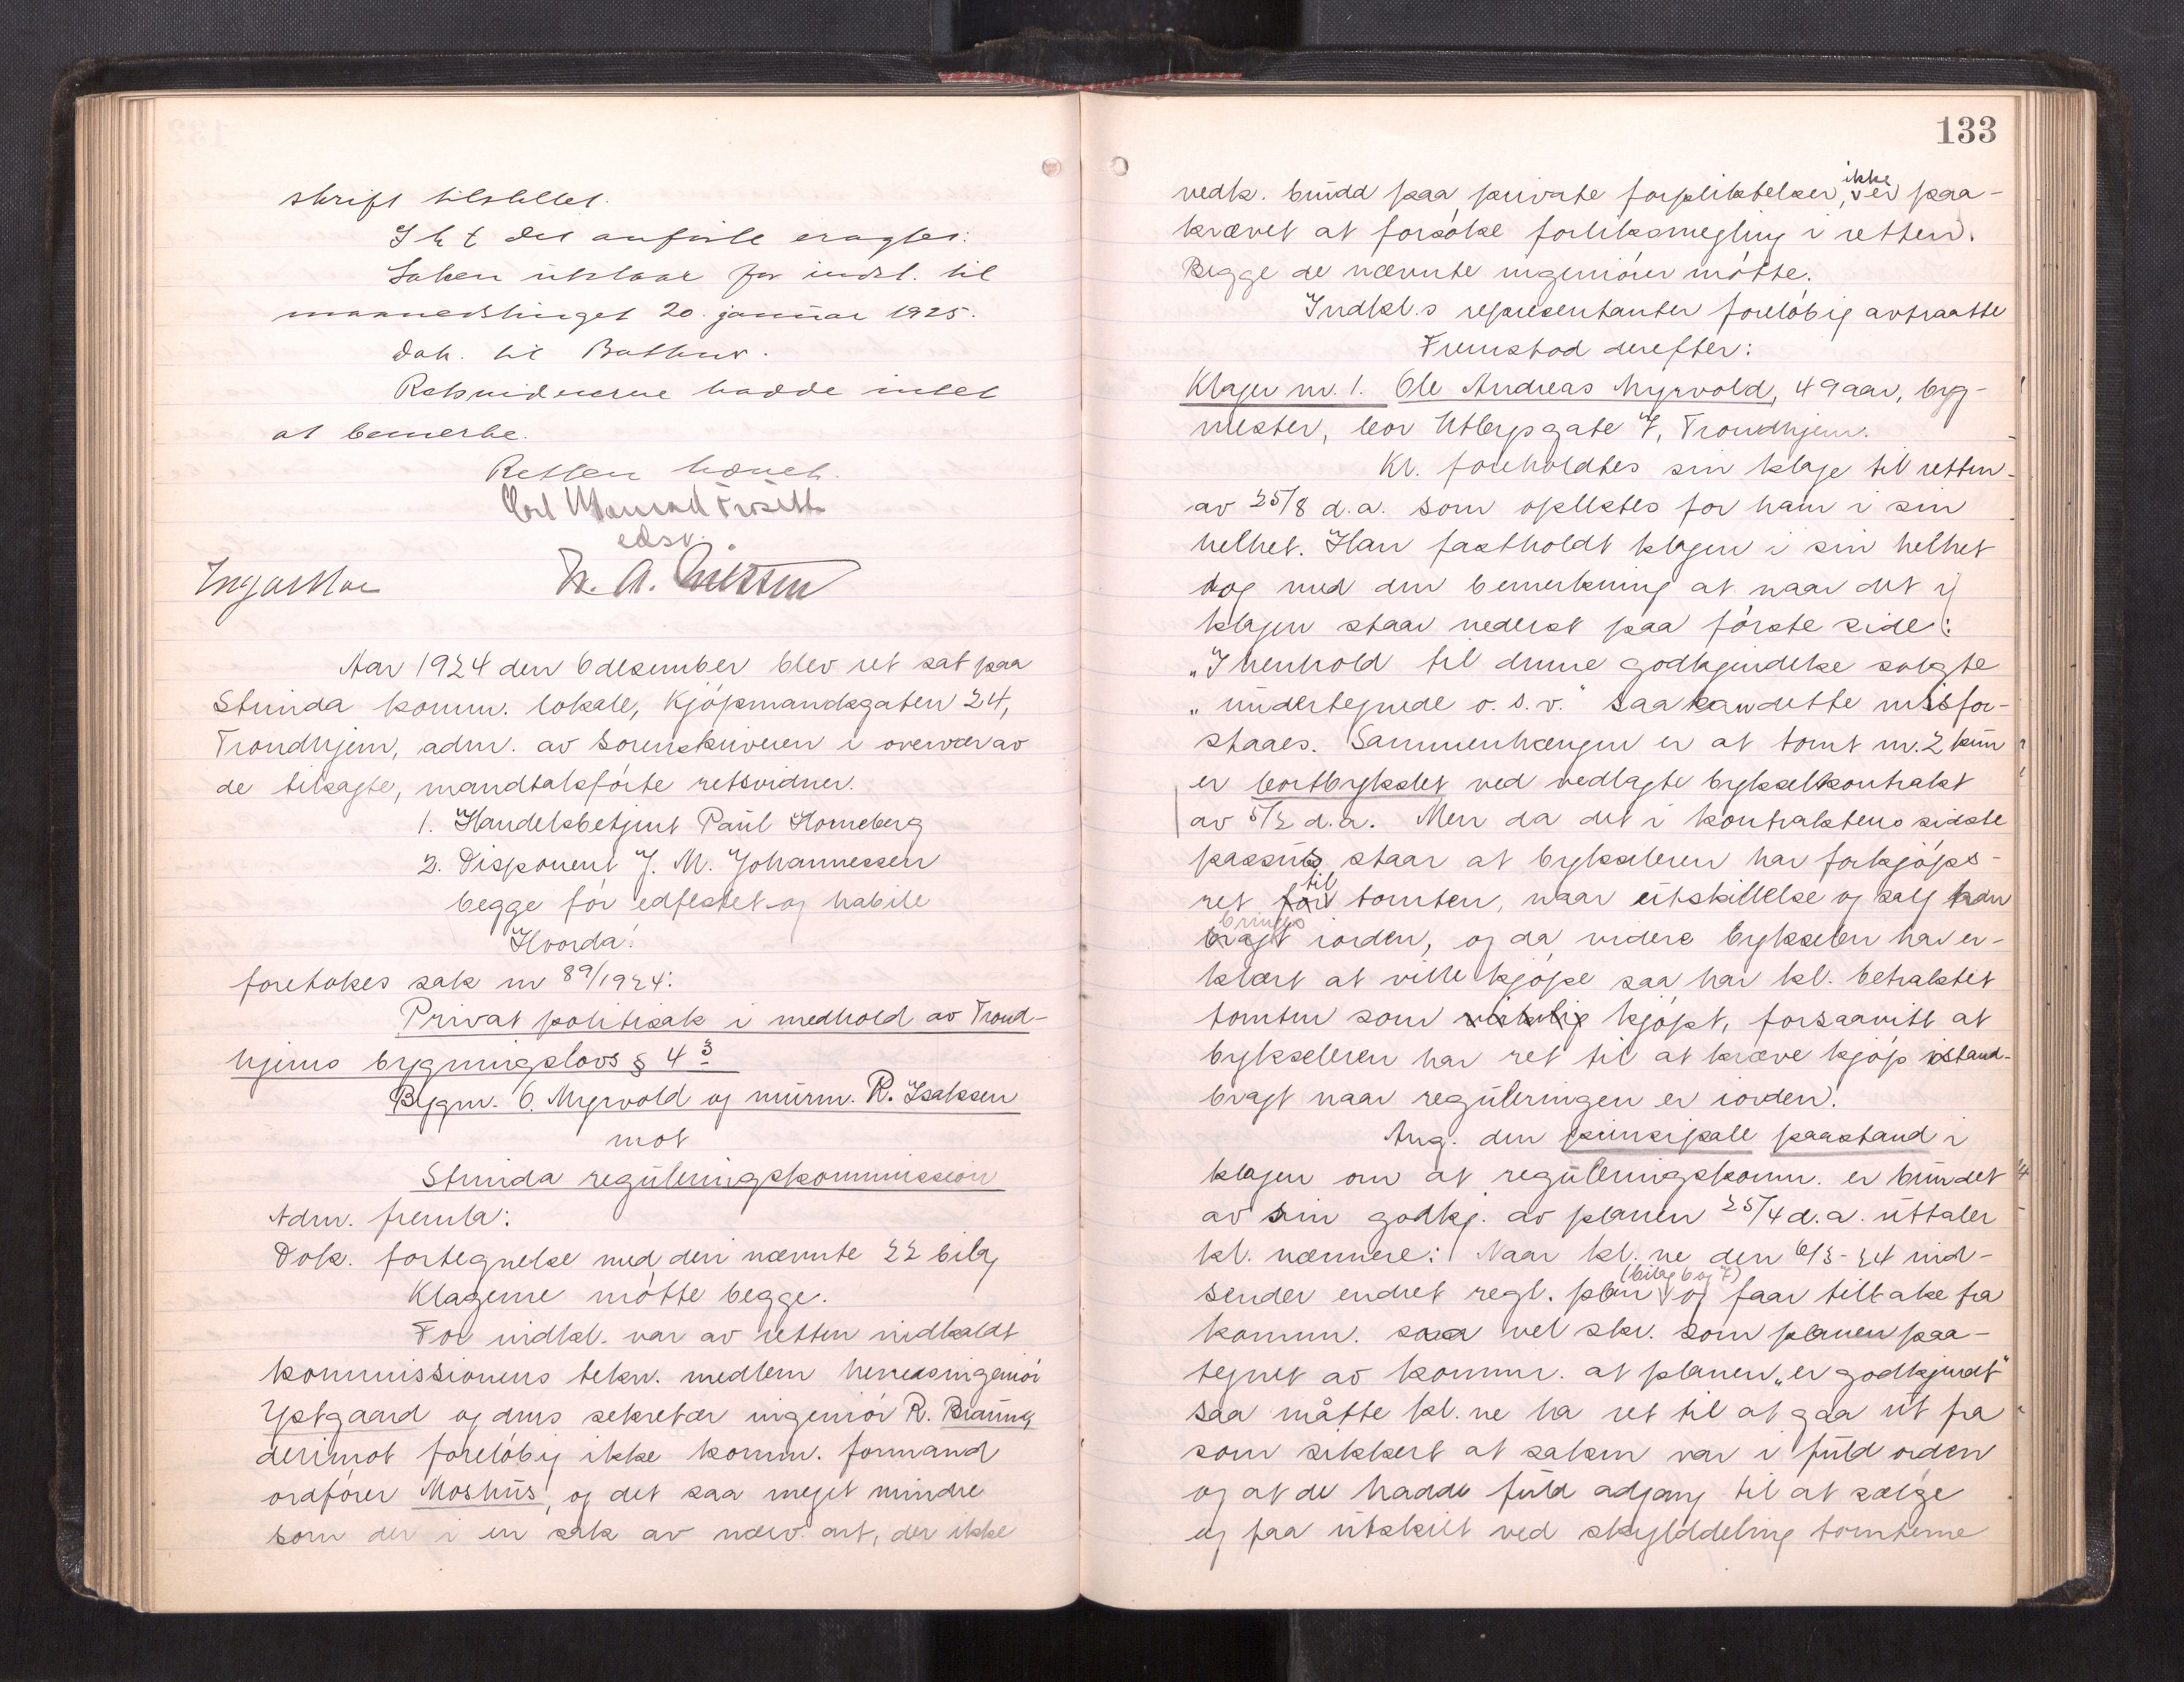 skrift tilstillet.
I h t det anførte eragtes:
Saken utstaar for indst. til
maanedstinget 20. januar 1925.
Dok. til
Retsvidnerne hadde intet
at bemerke.
Retten hævet.
edsv.
Aar 1924 den 6 desember blev ret sat paa
Strinda komm. lokale, Kjøpmandsgaten 24,
Trondhjem, adm. av sorenskriveren i overvær av
de tilsagte, mandtalsførte retsvidner.
1. Handelsbetjent Paul Horneberg
2. Disponent J. M. Johannessen
begge før edfestet og habile
Hvorda!
foretokes sak nr 89/1924:
Privat politisak i medhold av Trond-
hjems bygningslovs § 4 3
Bygm. O. Myrvold og murm. R. Isaksen
mot
Strinda reguleringskommission
Adm. fremla:
Dok. fortegnelse med deri nævnte 22 bilag
Klagerne møtte begge.
For indkl. var av retten indkaldt
kommissionens tekn. medlem herredsingeniør
Ystgaard og dens sekretær ingeniør R. Braun,
derimot foreløbig ikke komm. formand
ordfører Moshus, og det saa meget mindre
som der i en sak av nærv. art, der ikke
133
vedk. brudd paa private forpliktelser, ikke er paa-
krævet at forsøke forliksmegling i retten.
Begge de nævnte ingeniører møtte.
Indkl.s representanter foreløbig avtraatte
Fremstod derefter:
Klager nr. 1. Ole Andreas Myrvold, 49 aar, byg-
mester, bor gate 7, Trondhjem.
Kl. foreholdtes sin klage til retten
av 25/8 d.a. som oplæstes for ham i sin
helhet. Han fastholdt klagen i sin helhet
dog med den bemerkning at naar det i
klagen staar nederst paa første side:
"I henhold til denne godkjendelse solgte
" undertegnede o. s. v." saa kan dette misfor-
staaes. Sammenhængen er at tomt nr. 2 kun
er bortbykslet ved vedlagte bykselkontrakt
av 5/2 d.a. Men da det i kontraktens sidste
passus staar at bykseleren har forkjøps-
ret til tomten, naar utskillelse og salg kan
bringes iorden, og da videre bykseleren har er-
klært at ville kjøpe saa har kl. betraktet
tomten som kjøpt, forsaavitt at
bykseleren har ret til at kræve kjøp istand-
bragt naar reguleringen er iorden.
Ang. den prinsipale paastand i
klagen om at reguleringskomm. er bundet
av sin godkj. av planen 25/4 d.a. uttaler
kl. nærmere: Naar kl.ne den 6/3-24 ind-
sender endret regl. plan (bilag 6 og 7) og faar tilbake fra
komm. saa vel skr. som planen paa-
tegnet av komm. at planen "er godkjendt"
saa måtte kl.ne ha ret til at gaa ut fra
som sikkert at saken var i fuld orden
og at de hadde fuld adgang til at sælge
og faa utskilt ved skylddeling tomterne